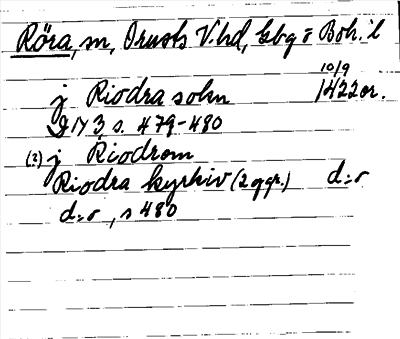 Röra, sn, Orusts V. hd, Gbg o Boh. l
10/9
j Riodra sokn 1422 or.
DN 3, s. 479-480
(?) j Riodrom
Riodra kyrkiv (2 ggr.) d:o
d:o, s 480